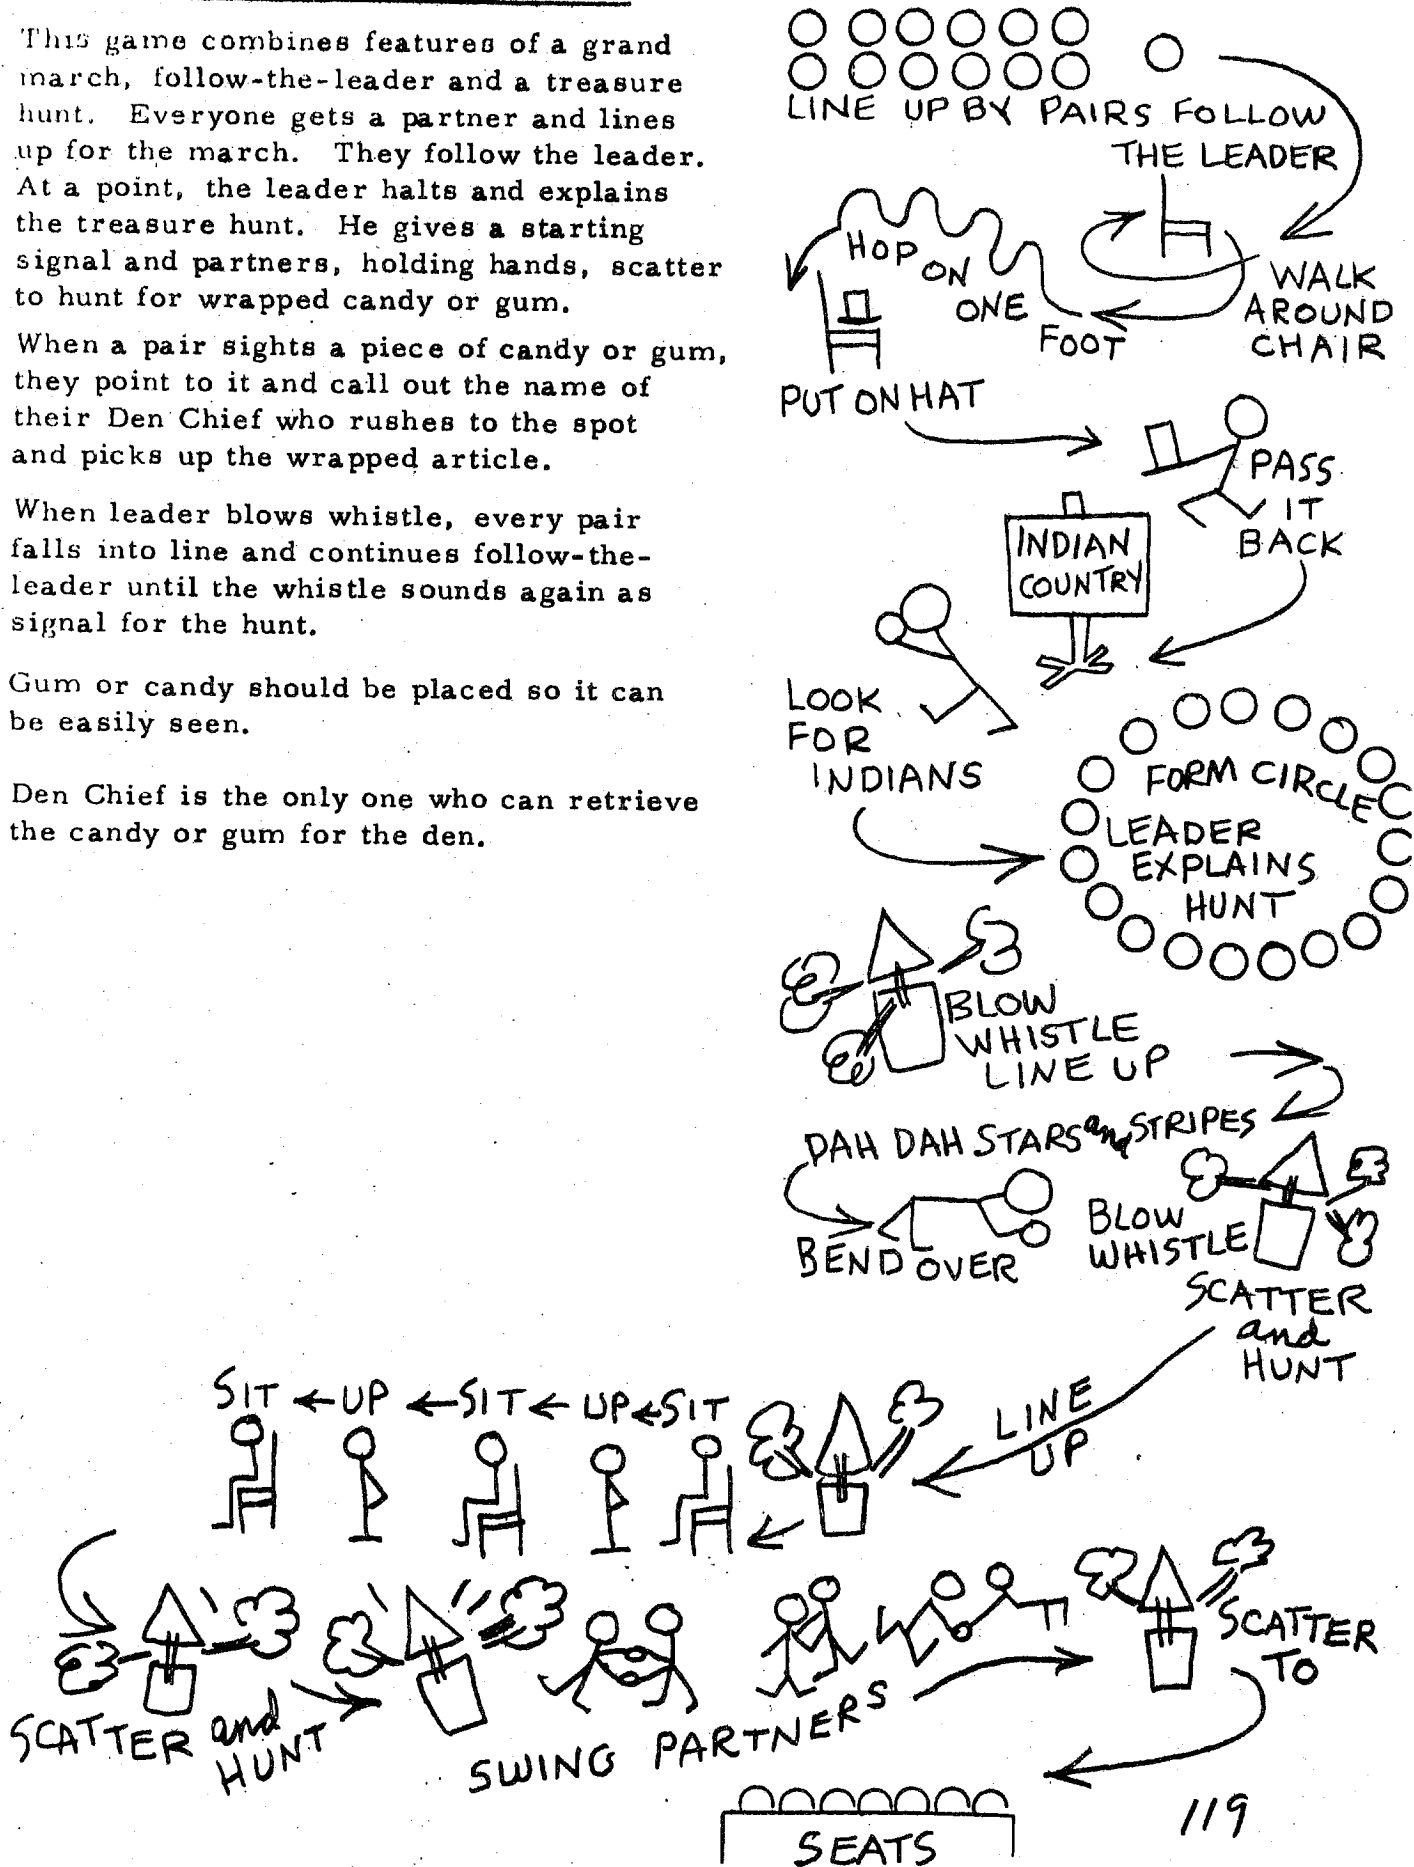 This game combines features of a grand
march, follow-the-leader and a treasure
hunt. Everyone gets a partner and lines
up for the march. They follow the leader.
At a point, the leader halts and explains
the treasure hunt. He gives a starting
signal and partners, holding hands, scatter
to hunt for wrapped candy or gum.
When a pair sights a piece of candy or gum,
they point to it and call out the name of
their Den Chief who rushes to the spot
and picks up the wrapped article.
When leader blows whistle, every pair
falls into line and continues follow-the-
leader until the whistle sounds again as
signal for the hunt.
Gum or candy should be placed so it can
be easily seen.
Den Chief is the only one who can retrieve
the candy or gum for the den.
LINE UP BY PAIRS FOLLOW
THE LEADER
WALK
AROUND
CHAIR
HOP ON
ONE
FOOT
PUT ON HAT
PASS
IT
BACK
INDIAN
COUNTRY
LOOK
FOR
INDIANS
FORM CIRCLE
LEADER
EXPLAINS
HUNT
BLOW
WHISTLE
LINE UP
DAH DAH STARS and STRIPES
BEND OVER
BLOW
WHISTLE
SCATTER
and
HUNT
LINE
UP
SIT UP SIT UP SIT
SCATTER and
HUNT
SWING PARTNERS
SCATTER
TO
SEATS
119